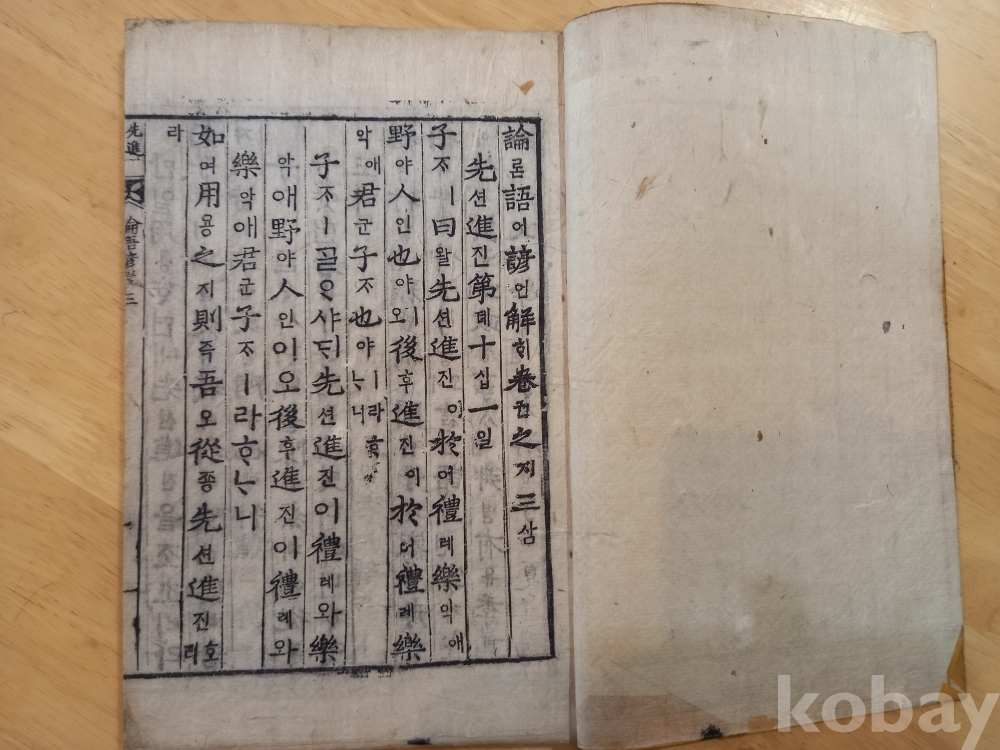 論론語어諺언解ᄒᆡ卷권之지三삼
先션進진第뎨十십一일
子ᄌᆞㅣ曰왈先션進진이於어禮례樂악애
野야人인也야ㅣ오後후進진이於어禮례樂
악애君군子ᄌᆞ也야ㅣ라ᄒᆞᄂᆞ니
子ᄌᆞㅣᄀᆞᆯᄋᆞ샤ᄃᆡ先션進진이禮례와樂
악애野야人인이오後후進진이禮례와
樂악애君군子ᄌᆞㅣ라ᄒᆞᄂᆞ니
如여用용之지則즉吾오從종先션進진호리
라
先進 論語諺解 三
kobay